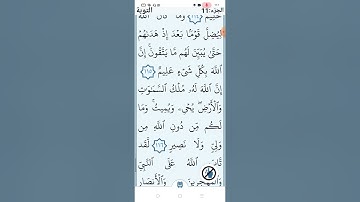 الجزء:11 التوبة
حَلِيمٌ ١١٤ وَمَا كَانَ ٱللَّهُ
لِيُضِلَّ قَوْمًۢا بَعْدَ إِذْ هَدَىٰهُمْ
حَتَّىٰ يُبَيِّنَ لَهُم مَّا يَتَّقُونَ ۚ إِنَّ
ٱللَّهَ بِكُلِّ شَىْءٍ عَلِيمٌ ١١٥
إِنَّ ٱللَّهَ لَهُۥ مُلْكُ ٱلسَّمَـٰوَٰتِ
وَٱلْأَرْضِ ۖ يُحْىِۦ وَيُمِيتُ ۚ وَمَا
لَكُم مِّن دُونِ ٱللَّهِ مِن
وَلِىٍّ وَلَا نَصِيرٍ ١١٦ لَّقَد
تَّابَ ٱللَّهُ عَلَى ٱلنَّبِىِّ
وَٱلْمُهَـٰجِرِينَ وَٱلْأَنصَارِ